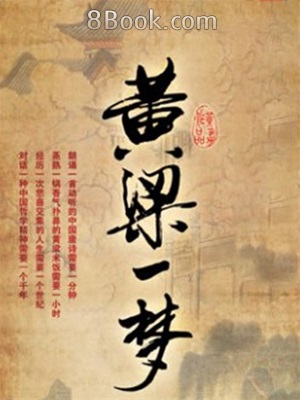 8Book.com
黄粱一梦
朗诵一首动听的中国唐诗需要一分钟
蒸熟一锅香气扑鼻的黄粱米饭需要一小时
经历一次悲喜交集的人生需要一个世纪
对话一种中国哲学精神需要一个千年